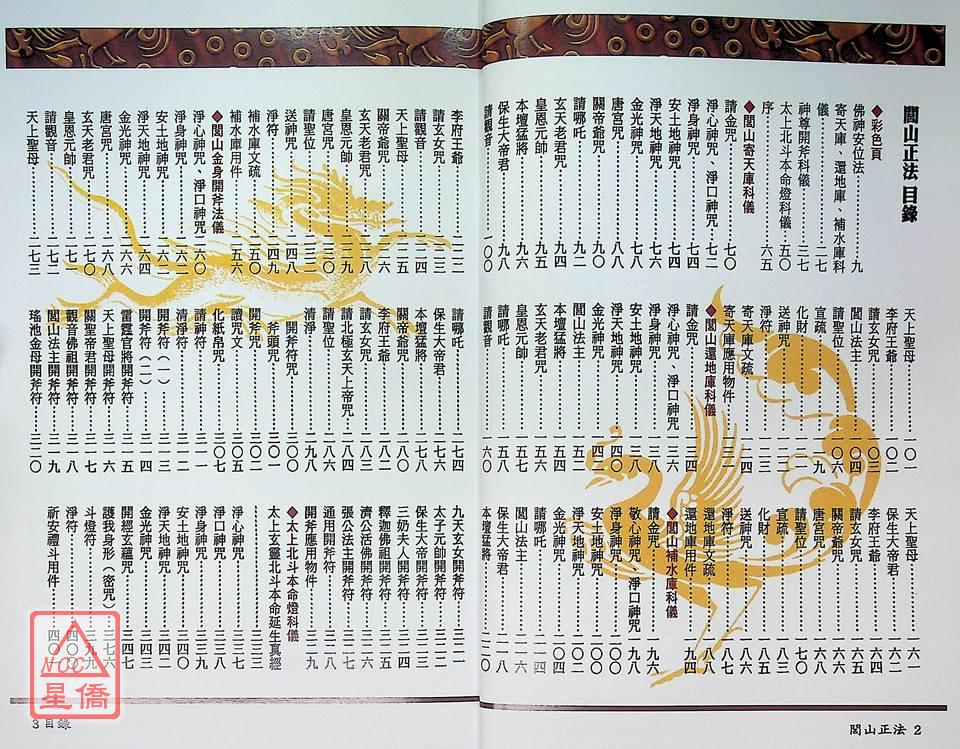 閭山正法 目錄
◆彩色頁
佛神安位法……九
寄天庫、還地庫、補水庫科
儀……二七
神尊開斧科儀……三七
太上北斗本命燈科儀……五〇
序……六五
◆閭山寄天庫科儀
請金咒……七〇
淨心神咒、淨口神咒……七二
淨身神咒……七四
安土地神咒……七四
淨天地神咒……七六
金光神咒……七八
唐宮咒……八八
關帝爺咒……九〇
請哪吒……九二
玄天老君咒……九四
皇恩元帥……九五
本壇猛將……九六
保生大帝君……九八
請觀音……一〇〇
天上聖母……一〇一
李府王爺……一〇二
請玄女咒……一〇三
閭山法主……一〇四
請聖位……一〇六
宣疏……一一九
化財……一二一
送神咒……一二二
淨符……一二三
寄天庫文疏……一二四
寄天庫應用物件……一三一
◆閭山還地庫科儀
請金咒……一三四
淨心神咒、淨口神咒……一三六
淨身神咒……一三八
安土地神咒……一三八
淨天地神咒……一四〇
金光神咒……一四二
閭山法主……一五二
本壇猛將……
玄天老君咒……
皇恩元帥……
請哪吒……一五七
保生大帝君……一五八
請觀音……一六〇
天上聖母……一六一
保生大帝君……一六二
李府王爺……一六四
請玄女咒……一六五
關帝爺咒……一六六
唐宮咒……一六八
請聖位……一七〇
宣疏……一八三
化財……一八五
送神咒……一八六
淨符……一八七
還地庫文疏……一八八
還地庫用件……一九四
◆閭山補水庫科儀
請金咒……一九六
敬心神咒、淨口神咒……一九八
淨身神咒……二〇〇
安土地神咒……二〇〇
淨天地神咒……二〇二
金光神咒……二〇四
請哪吒……二一四
閭山法主……二一六
保生大帝君……二一八
本壇猛將……二二〇
閭山正法 2
李府王爺……二二二
請玄女咒……二二三
請觀音……二二四
天上聖母……二二五
關帝爺咒……二二六
玄天老君咒……二二八
皇恩元帥……二二九
唐宮咒……二三〇
請聖位……二三二
送神咒……二四八
淨符……二四九
補水庫文疏……二五〇
補水庫用件……二五六
◆閭山金身開斧法儀
淨心神咒、淨口神咒……二六〇
淨身神咒……二六二
安土地神咒……二六二
淨天地神咒……二六四
金光神咒……二六六
唐宮咒……二六八
玄天老君咒……二七〇
皇恩元帥……二七一
請觀音……二七二
天上聖母……二七三
請哪吒……二七四
保生大帝君……二七六
本壇猛將……二七八
關帝爺咒……二八〇
李府王爺……二八二
請玄女咒……二八三
請北極玄天上帝咒……二八四
請聖位……二八六
清淨……二九八
開斧符咒……三〇〇
斧頭咒……三〇一
開斧咒……三〇二
讀咒文……三〇五
化紙帛咒……三〇七
請神咒……三一一
清淨……三一二
開斧符（一）……三一三
開斧符（二）……三一四
雷霆官將開斧符……三一五
天上聖母開斧符……三一六
關聖帝君開斧符……三一七
觀音佛祖開斧符……三一八
閭山法主開斧符……三一九
瑤池金母開斧符……三二〇
九天玄女開斧符……三二一
太子元帥開斧符……三二二
保生大帝開斧符……三二三
三奶夫人開斧符……三二四
釋迦佛祖開斧符……三二五
濟公活佛開斧符……三二六
張公法主開斧符……三二七
通用開斧符……三二八
開斧應用物件……三二九
◆太上北斗本命燈科儀
太上玄靈北斗本命延生真經
……三三三
淨心神咒……三三七
淨口神咒……三三八
淨身神咒……三三九
安土地神咒……三四〇
淨天地神咒……三四二
金光神咒……三四三
開經玄蘊咒……三四七
護我身形（密咒）……三七六
斗燈符……三九九
淨符……四〇〇
祈安禮斗用件……四〇一
3 目錄
NCC
星僑